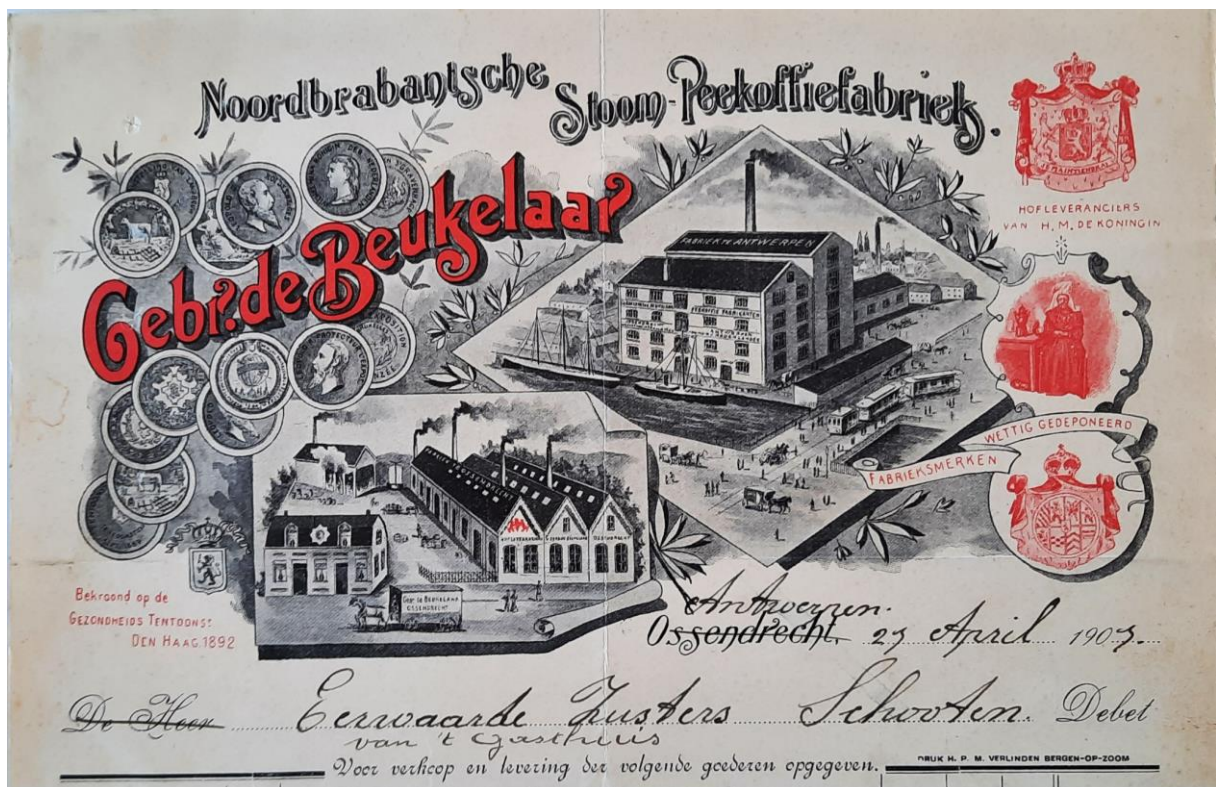 Noordbrabantsche
Stoom-Peekoffiefabriek.
Gebrs. de Beukelaar
HOFLEVERANCIERS
VAN H. M. DE KONINGIN
FABRIEK TE ANTWERPEN
WETTIG GEDEPONEERD
FABRIEKSMERKEN
GEBR. DE BEUKELAAR
OSSENDRECHT
Bekroond op de
GEZONDHEIDS TENTOONST
DEN HAAG 1892
Antwerpen.
Ossendrecht, 29 April 1907.
De Heer Eerwaarde Zusters Schooten. Debet
van 't Gasthuis
Voor verkoop en levering der volgende goederen opgegeven.
DRUK H. P. M. VERLINDEN BERGEN-OP-ZOOM